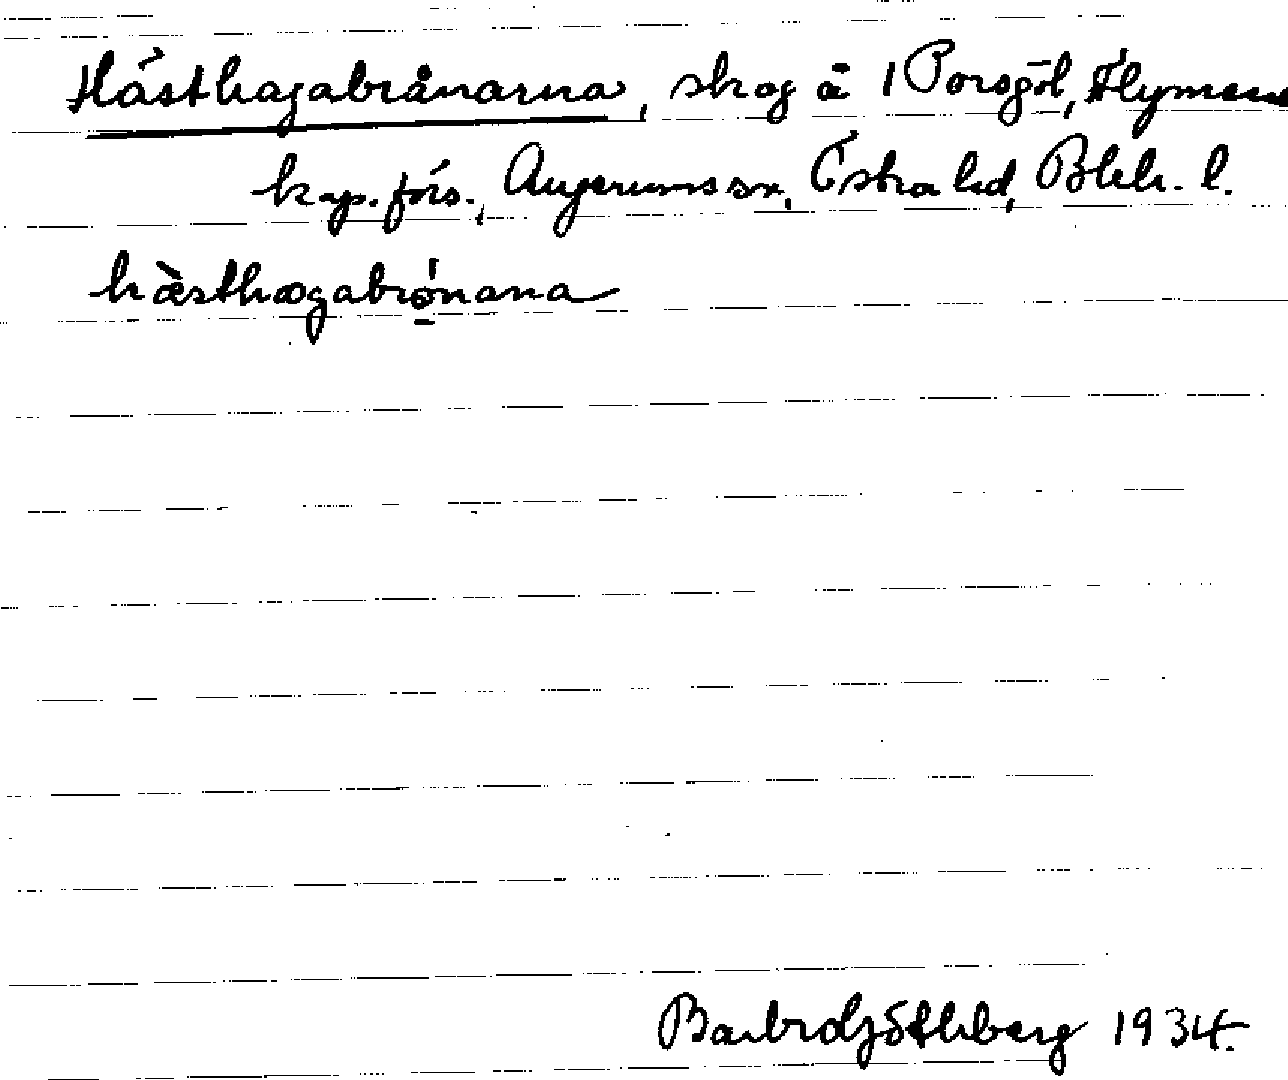 Hästhagabrånarna, skog å 1 Porsgöl, Flymens
kap. förs., Augerums sn, Östra hd, Blek. l.
hæ̀sthagabrǫ́nana
Barbro Göthberg 1934.